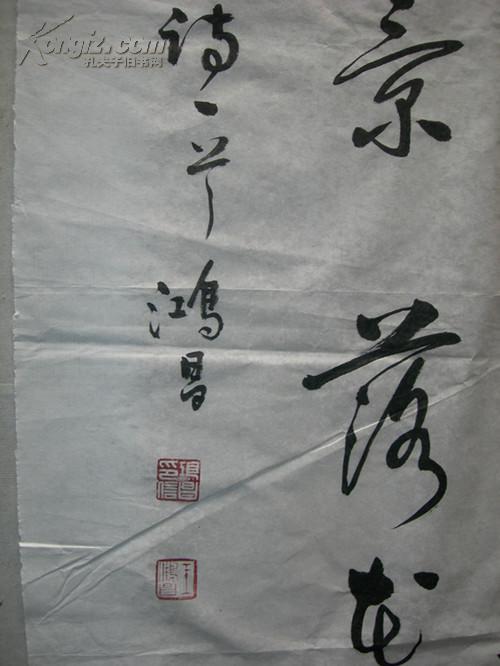 景落花
诗一首
鸿昌
Kongfz.com
孔夫子旧书网